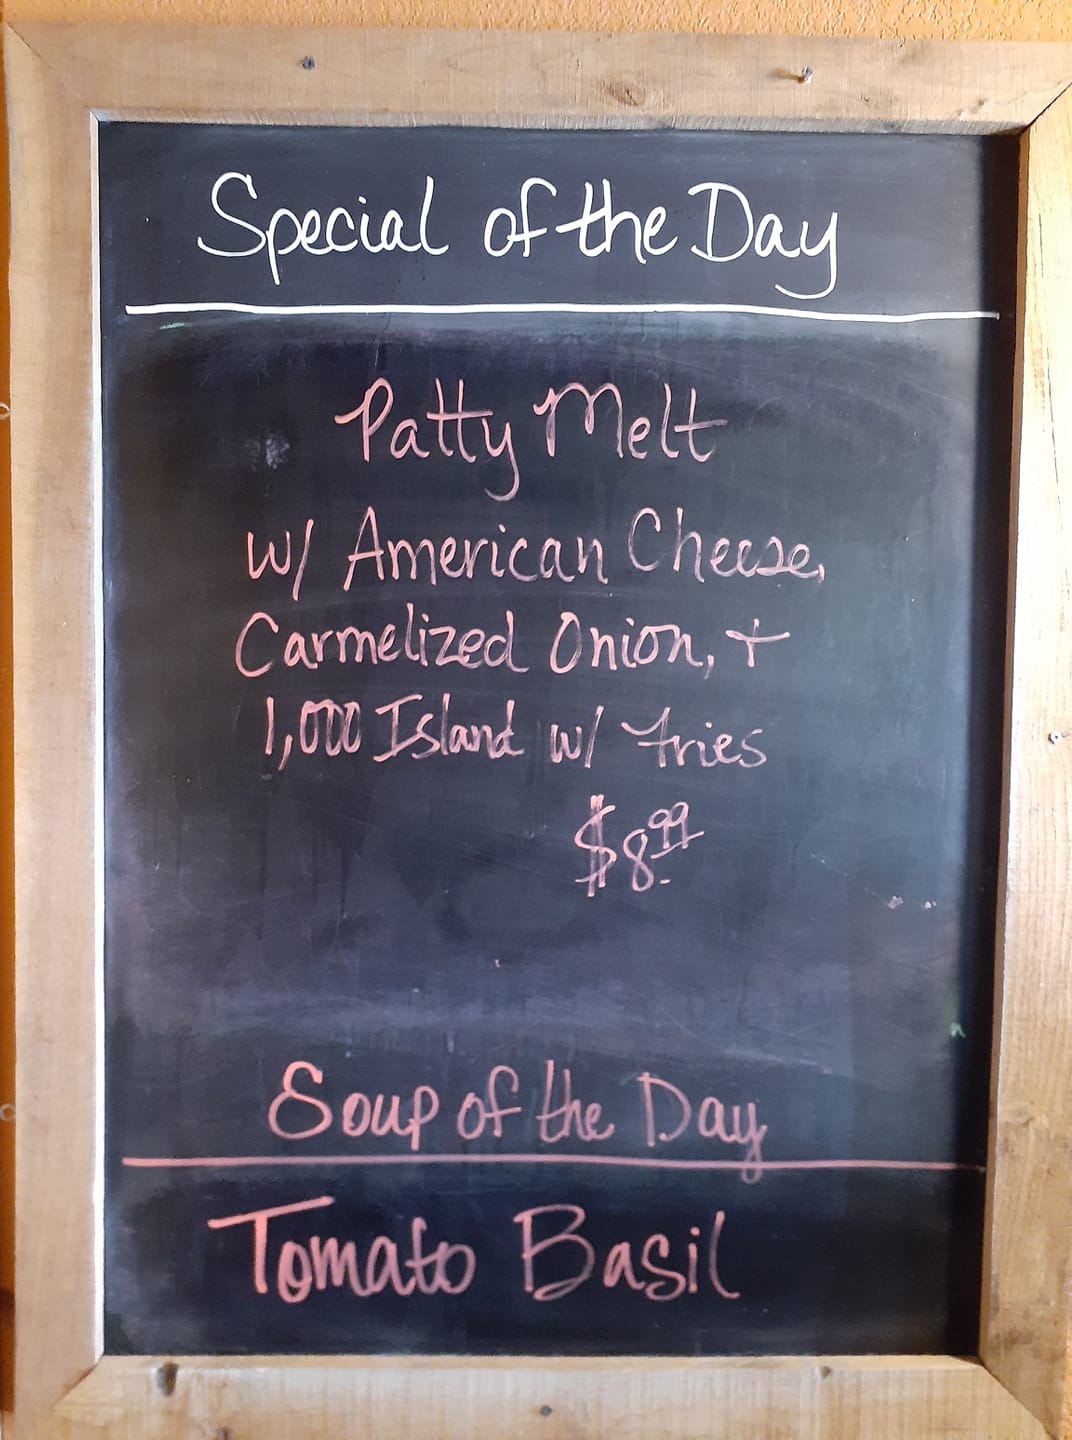 Special of the Day
Patty Melt
w/ American Cheese,
Carmelized Onion, +
1,000 Island w/ fries
$8.99
Soup of the Day
Tomato Basil